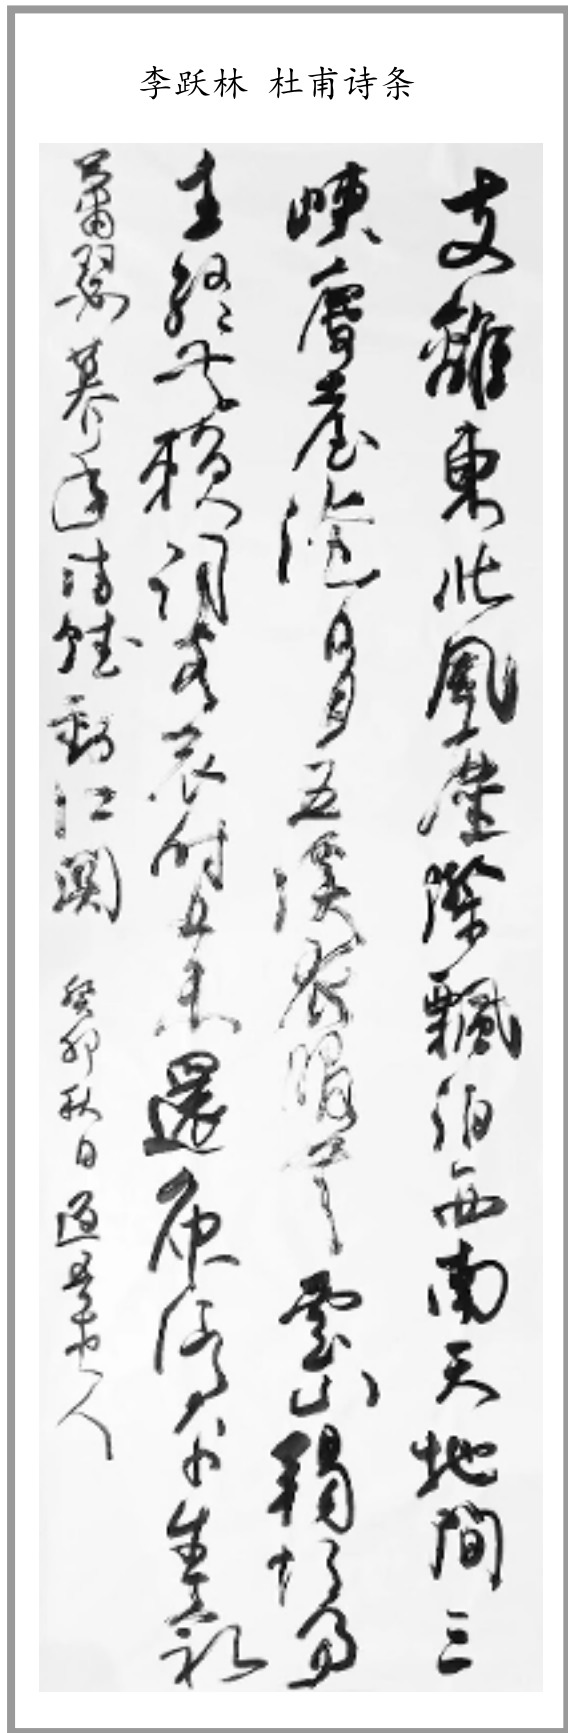 李跃林 杜甫诗条
支離東北風塵際飄泊西南天地間三
峽層臺淹日月五溪衣服共雲山羯胡事
主終無賴詞客哀時且未還庾信平生最
蕭瑟暮年詩賦動江關 癸卯秋日 人